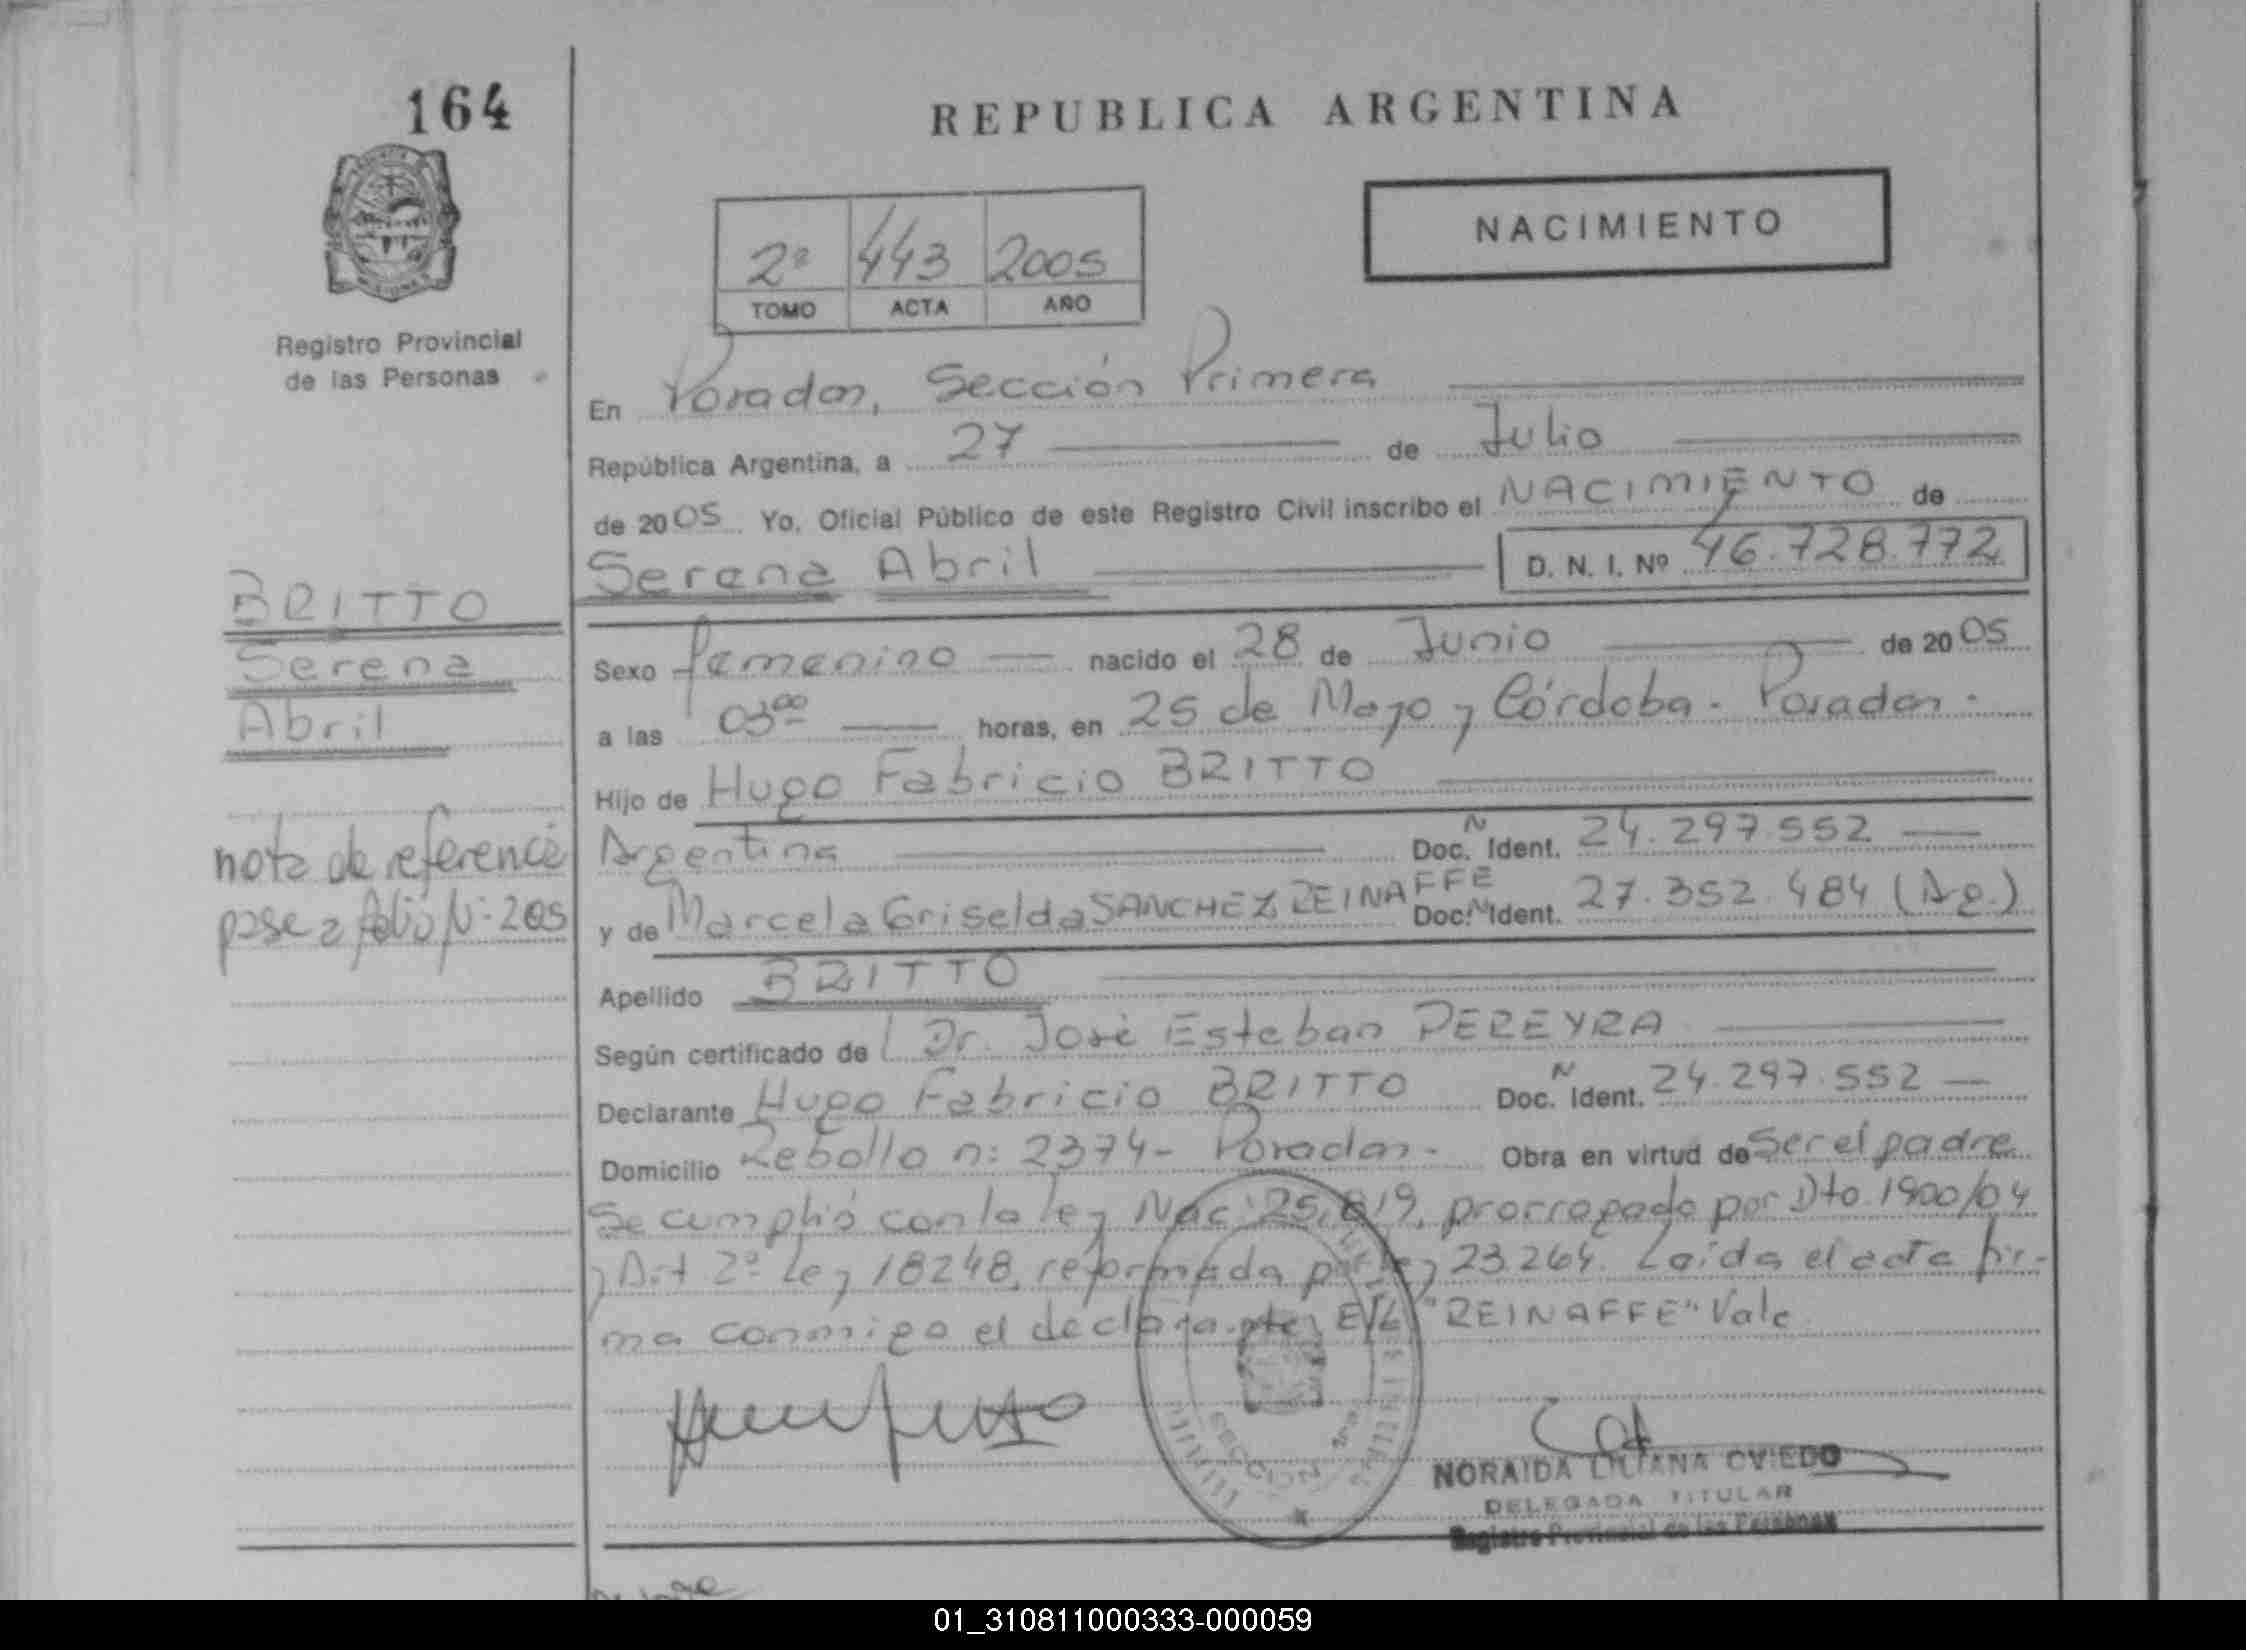 164
REPUBLICA ARGENTINA
NACIMIENTO
2º 443 2005
TOMO ACTA AÑO
Registro Provincial
de las Personas
En Posadas, Sección Primera
República Argentina, a 27 de Julio
de 2005 Yo, Oficial Público de este Registro Civil inscribo el NACIMIENTO de
Serena Abril D. N. I. Nº 46.728.772
BRITTO
Serena
Abril
nota de referencia
pase a folio Nº 205
Sexo femenino nacido el 28 de Junio de 2005
a las 03⁰⁰ horas, en 25 de Mayo y Córdoba - Posadas -
Hijo de Hugo Fabricio BRITTO
Argentina Doc. N Ident. 24.297.552
y de Marcela Griselda SANCHEZ REINAFFE Doc. N Ident. 27.352.484 (Ag.)
Apellido BRITTO
Según certificado de Dr. José Esteban PEREYRA
Declarante Hugo Fabricio BRITTO Doc. N Ident. 24.297.552
Domicilio Rebollo n: 2374 - Posadas - Obra en virtud de Ser el padre
Se cumplió con la ley Nac. 25.819, prorrogado por Dto. 1900/04
y Art 2º Ley 18248, reformada por ley 23.264. Leída el acta fir-
ma conmigo el declarante, E/L "REINAFFE" Vale
SECCION 1ra
NORAIDA LILIANA OVIEDO
DELEGADA TITULAR
Registro Provincial de las Personas
01_310811000333-000059